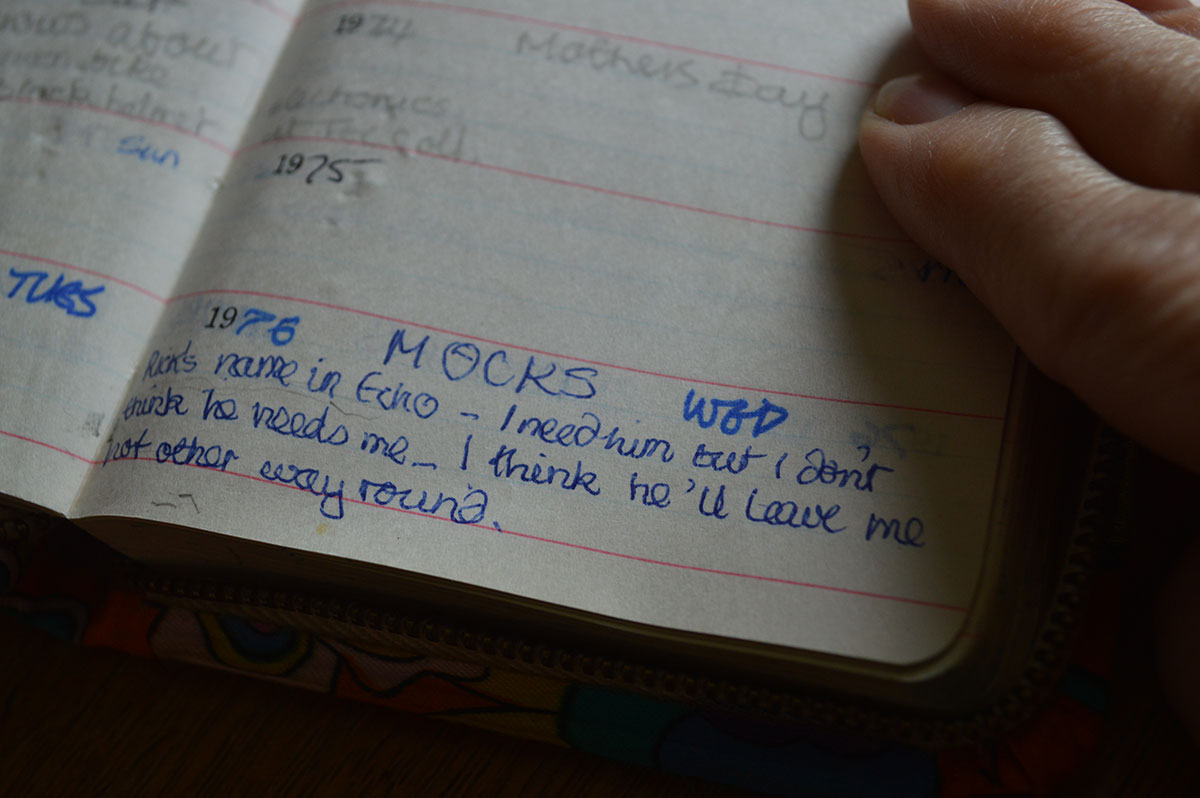 about
Sun
TUES
1974 Mothers Day
1975
1976 MOCKS WED
Rick's name in Echo - I need him but I don't
think he needs me - I think he'll leave me
not other way round.